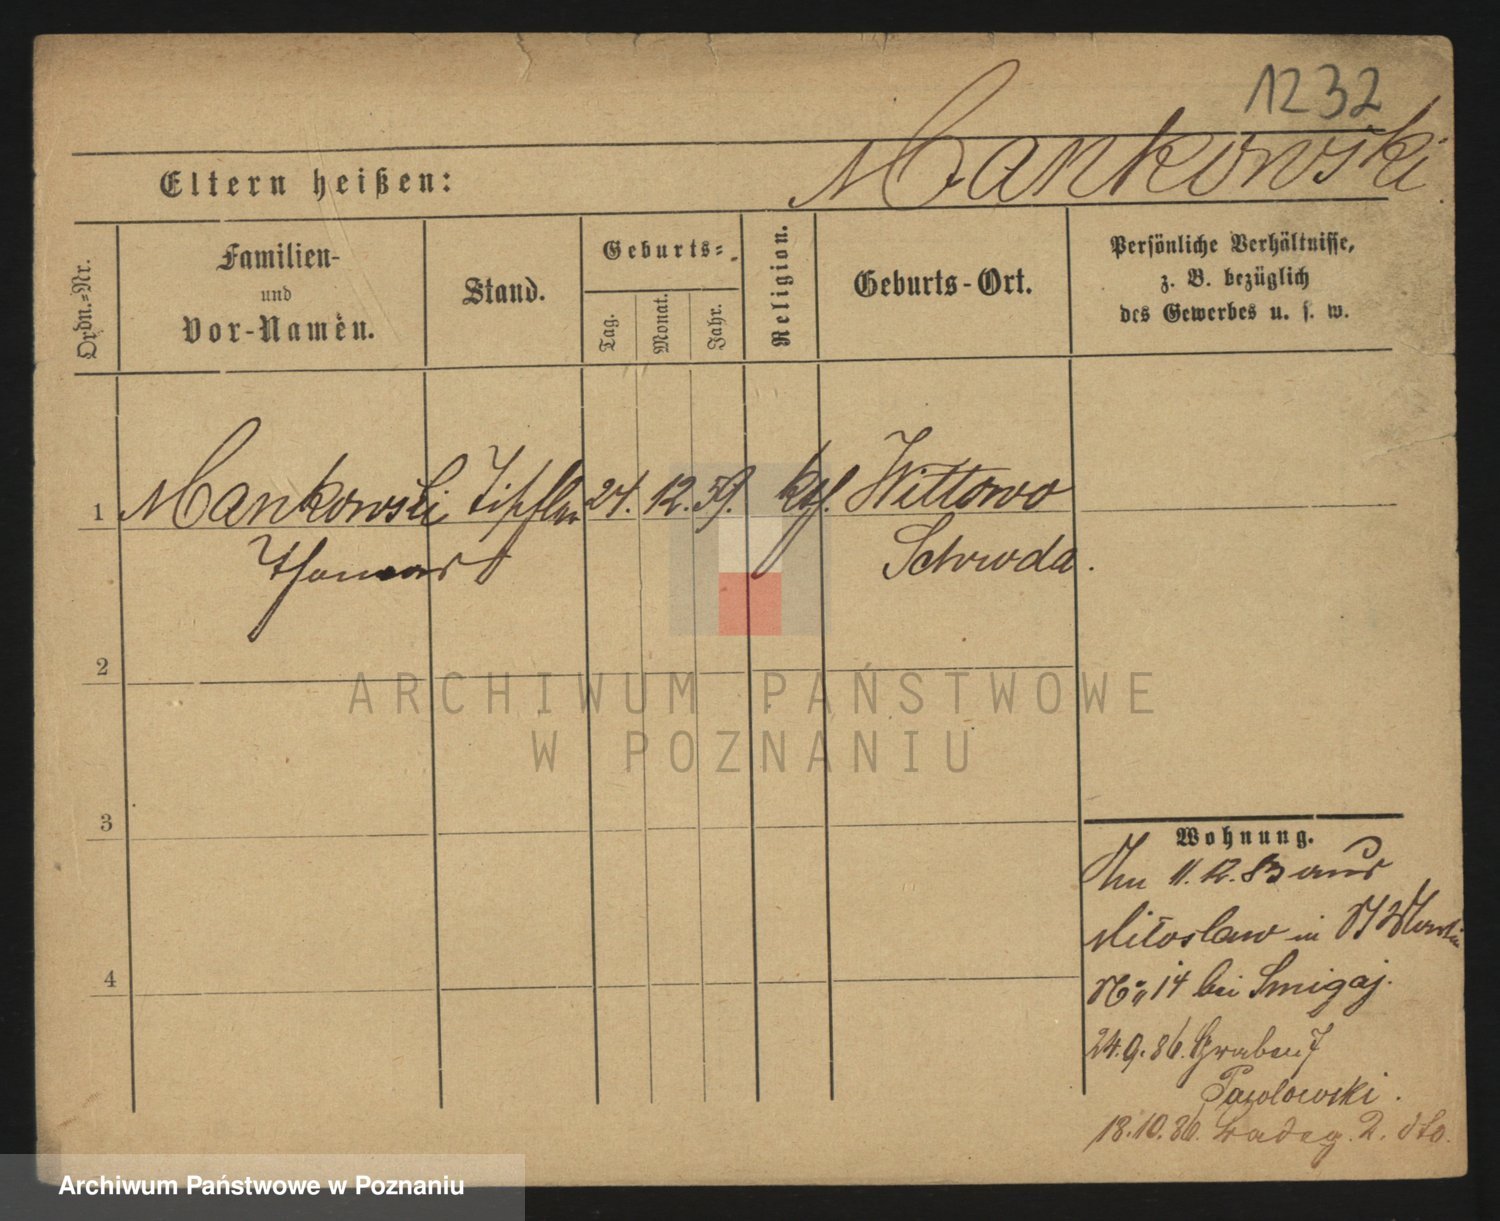 1232
Mankowski
Eltern heißen:
Ordn.=Nr.
Familien-
und
Vor-Namen.
Stand.
Geburts=
Tag.
Monat.
Jahr.
Religion.
Geburts-Ort.
Persönliche Verhältnisse,
z. B. bezüglich
des Gewerbes u. s. w.
1 Mankowski Tischler 24. 12. 59. kath. Wittowo
Thomas Schroda.
2
3
4
Wohnung.
11.12.83 aus
Miloslaw in
No 14 bei Smigaj.
24.9.86. Graben 7
Pawlowski.
18.10.86. 2. dto.
ARCHIWUM PAŃSTWOWE
W POZNANIU
Archiwum Państwowe w Poznaniu